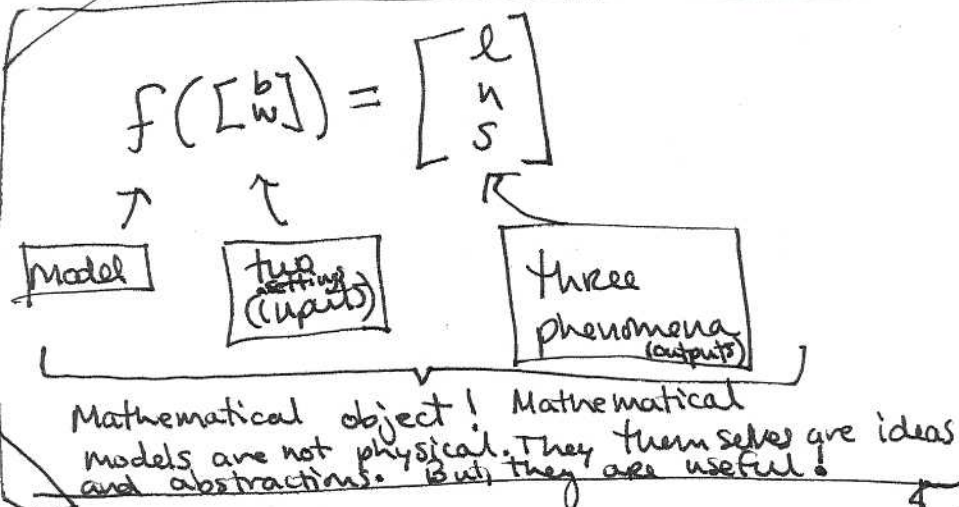 f([b w]) = [l n s]
Model
two
settings
(inputs)
three
phenomena
(outputs)
Mathematical object! Mathematical
models are not physical. They themselves are ideas
and abstractions. But, they are useful!